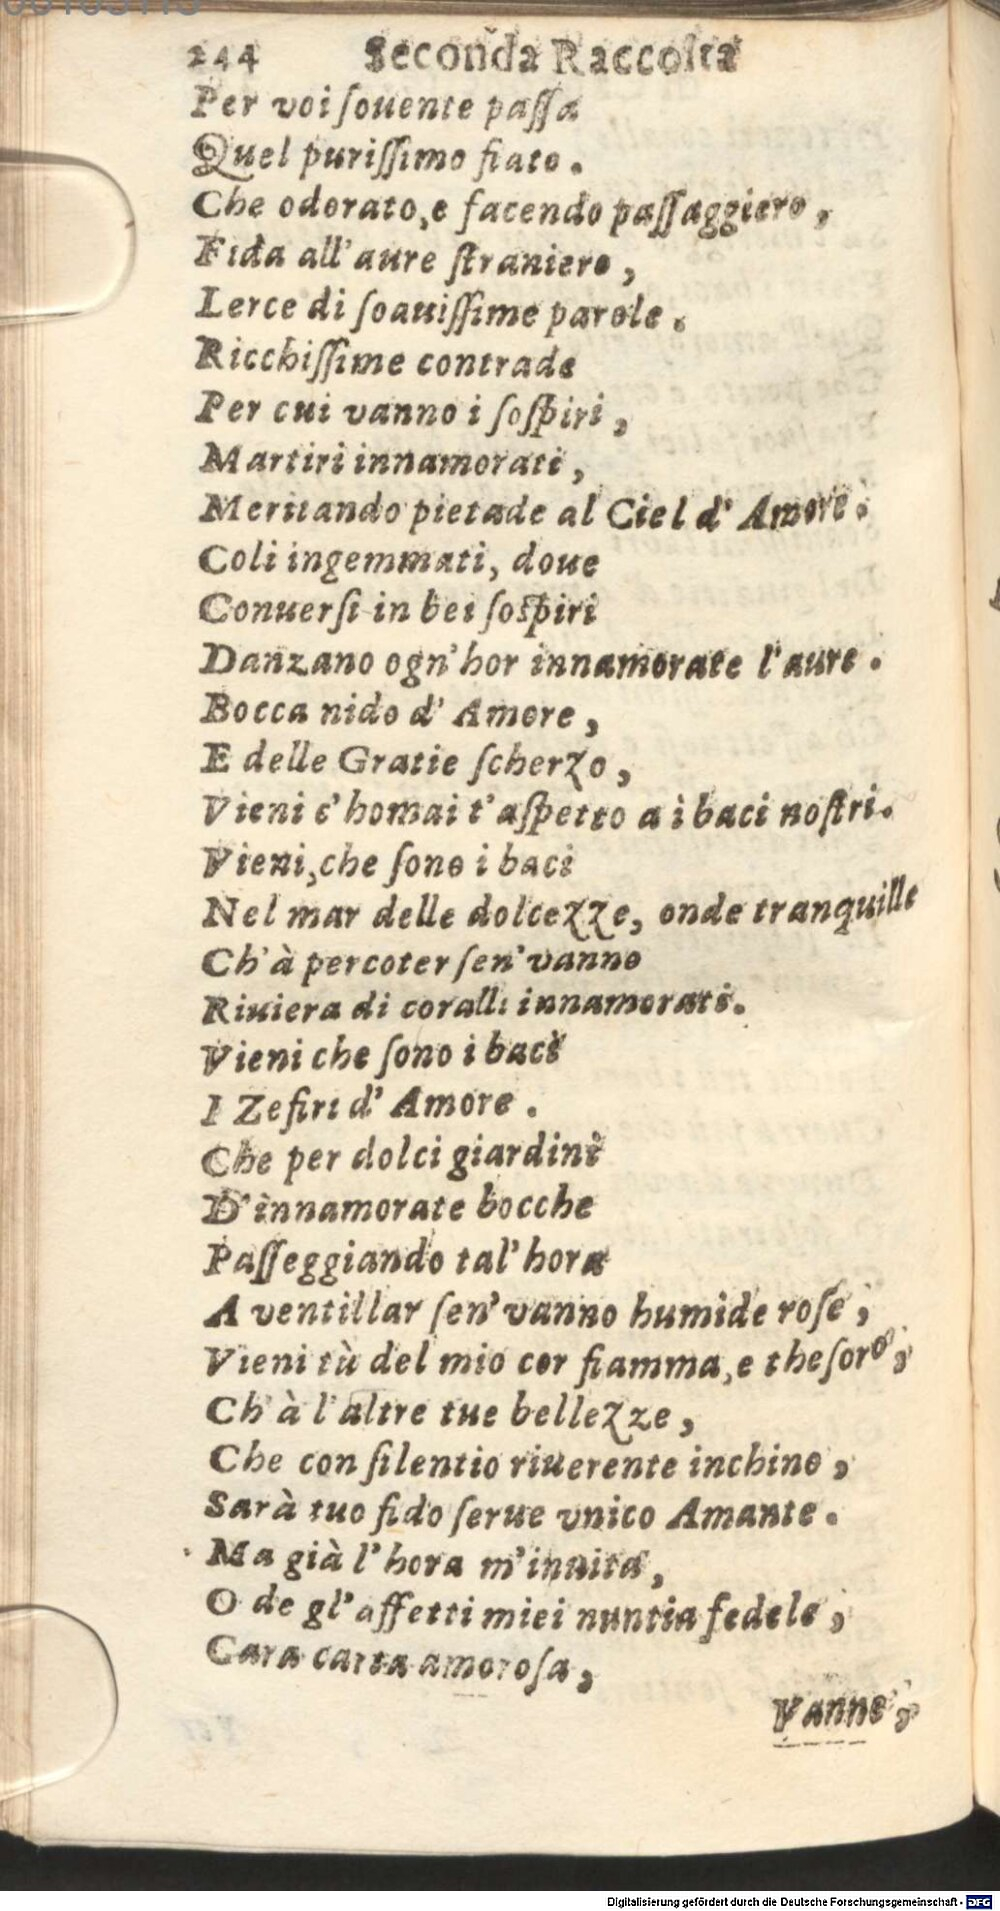 244 Seconda Raccolta
Per voi ſouente paſſa
Quel puriſſimo fiato.
Che odorato, e facendo paſſaggiero,
Fida all'aure ſtraniero,
Lerce di ſoauiſſime parole.
Ricchiſſime contrade
Per cui vanno i ſoſpiri,
Martiri innamorati,
Meritando pietade al Ciel d'Amore:
Coli ingemmati, doue
Conuerſi in bei ſoſpiri
Danzano ogn'hor innamorate l'aure.
Bocca nido d'Amore,
E delle Gratie ſcherzo,
Vieni c'homai t'aſpetto a i baci noſtri.
Vieni, che ſono i baci
Nel mar delle dolcezze, onde tranquille
Ch'à percoter ſen'vanno
Riuiera di coralli innamorati.
Vieni che ſono i baci
I Zefiri d'Amore.
Che per dolci giardini
D'innamorate bocche
Paſſeggiando tal'hora
A ventillar ſen'vanno humide roſe,
Vieni tù del mio cor fiamma, e theſoro,
Ch'à l'altre tue bellezze,
Che con ſilentio riuerente inchino,
Sarà tuo fido ſerue vnico Amante.
Ma già l'hora m'inuita,
O de gl'affetti miei nuntia fedele,
Cara carta amoroſa,
Vanne,
Digitalisierung gefördert durch die Deutsche Forschungsgemeinschaft - DFG